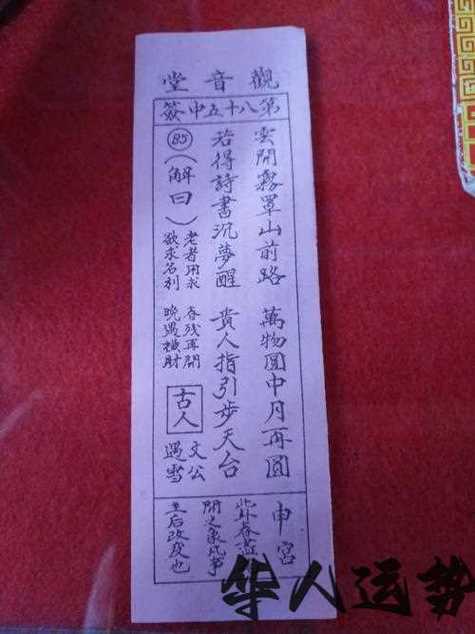 觀音堂
第八十五中簽
雲開霧罩山前路 萬物圓中月再圓
若得詩書沉夢醒 貴人指引步天台
85
(解曰)
老者用求 春残再開
欲求名利 晚遇橫財
古人
文公
遇雪
申宮
此卦春盡
開之象凡事
主后改變也
华人运势